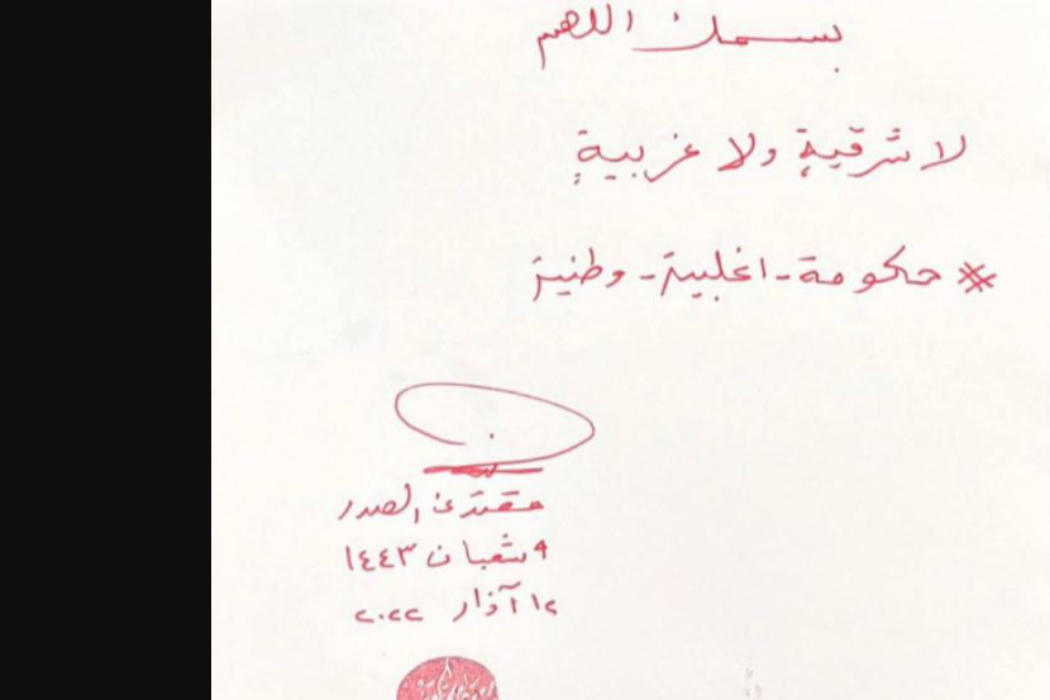 بسمك اللهم
لا شرقيةٍ ولا غربيةٍ
* حكومة - اغلبية - وطنية
مقتدى الصدر
٩ شعبان ١٤٤٣
١٢ آذار ٢٠٢٢